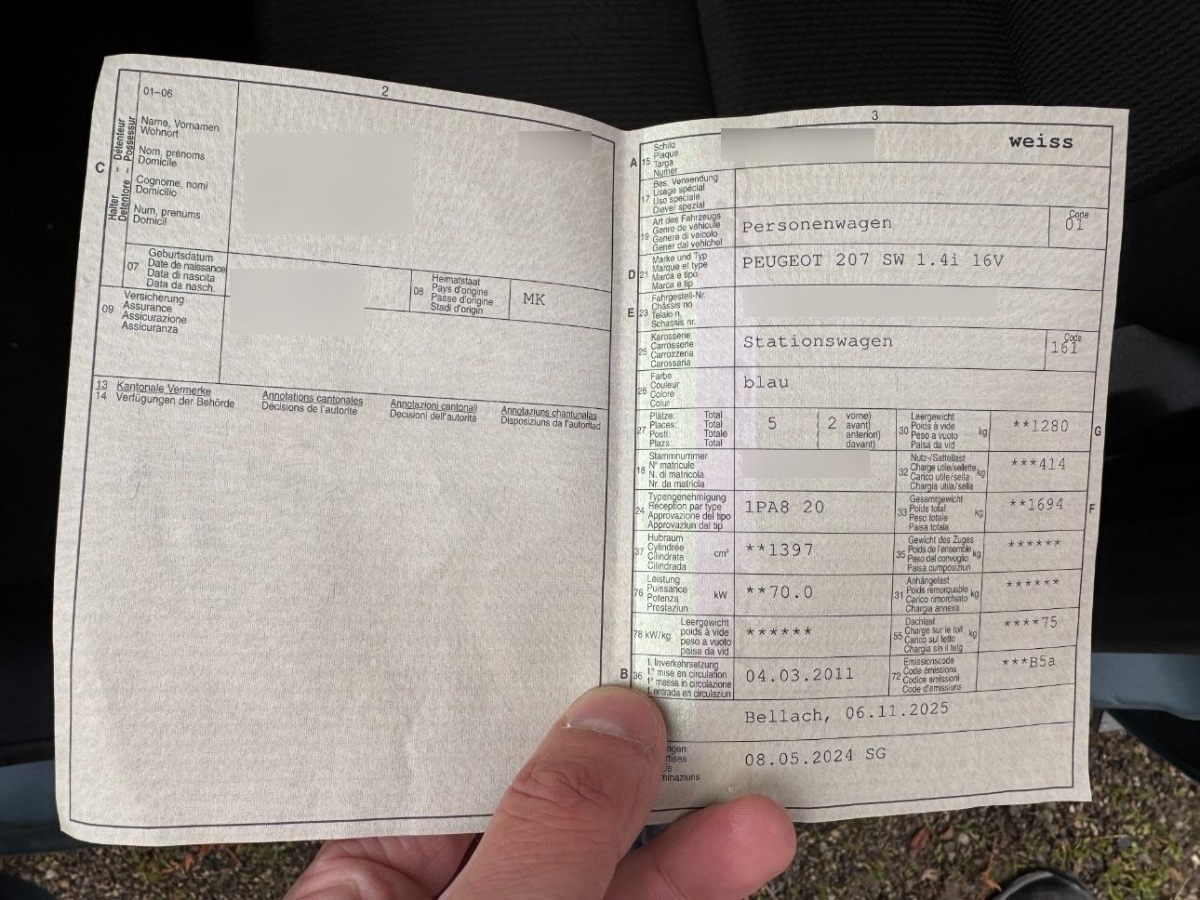 2
01-06
Name, Vornamen
Wohnort
Nom, prénoms
Domicile
Cognome, nomi
Domicilio
Num, prenums
Domicil
C
Halter - Détenteur
Detentore - Possessur
07
Geburtsdatum
Date de naissance
Data di nascita
Data da nasch.
08
Heimatstaat
Pays d'origine
Paese d'origine
Stadi d'origin
MK
09
Versicherung
Assurance
Assicurazione
Assicuranza
13
14
Kantonale Vermerke
Verfügungen der Behörde
Annotations cantonales
Décisions de l'autorité
Annotazioni cantonali
Decisioni dell'autorità
Annotaziuns chantunalas
Disposiziuns da l'autoritad
3
A 15
Schild
Plaque
Targa
Numer
weiss
17
Bes. Verwendung
Usage spécial
Uso speciale
Diever spezial
19
Art des Fahrzeugs
Genre de véhicule
Genere di veicolo
Gener dal vehichel
Personenwagen
Code
01
D 21
Marke und Typ
Marque et type
Marca e tipo
Marca e tip
PEUGEOT 207 SW 1.4i 16V
E 23
Fahrgestell-Nr.
Châssis no
Telaio n.
Schassis nr.
25
Karosserie
Carrosserie
Carrozzeria
Carossaria
Stationswagen
Code
161
26
Farbe
Couleur
Colore
Colur
blau
27
Plätze: Total
Places: Total
Posti: Totale
Plazs: Total
5
( 2
vorne)
avant)
anteriori)
davant)
30
Leergewicht
Poids à vide
Peso a vuoto
Paisa da vid
kg
**1280
G
18
Stammnummer
N° matricule
N. di matricola
Nr. da matricla
32
Nutz-/Sattellast
Charge utile/sellette
Carico utile/sella
Chargia utila/sella
kg
***414
24
Typengenehmigung
Réception par type
Approvazione del tipo
Approvaziun dal tip
1PA8 20
33
Gesamtgewicht
Poids total
Peso totale
Paisa totala
kg
**1694
F
37
Hubraum
Cylindrée
Cilindrata
Cilindrada
cm³
**1397
35
Gewicht des Zuges
Poids de l'ensemble
Peso del convoglio
Paisa cumposiziun
kg
******
76
Leistung
Puissance
Potenza
Prestaziun
kW
**70.0
31
Anhängelast
Poids remorquable
Carico rimorchiato
Chargia annexa
kg
******
78 kW/kg
Leergewicht
poids à vide
peso a vuoto
paisa da vid
******
55
Dachlast
Charge sur le toit
Carico sul tetto
Chargia sin il tetg
kg
****75
B 36
1. Inverkehrsetzung
1re mise en circulation
1a messa in circolazione
1. entrada en circulaziun
04.03.2011
72
Emissionscode
Code émissions
Codice emissioni
Code d'emissiuns
***B5a
Bellach, 06.11.2025
08.05.2024 SG